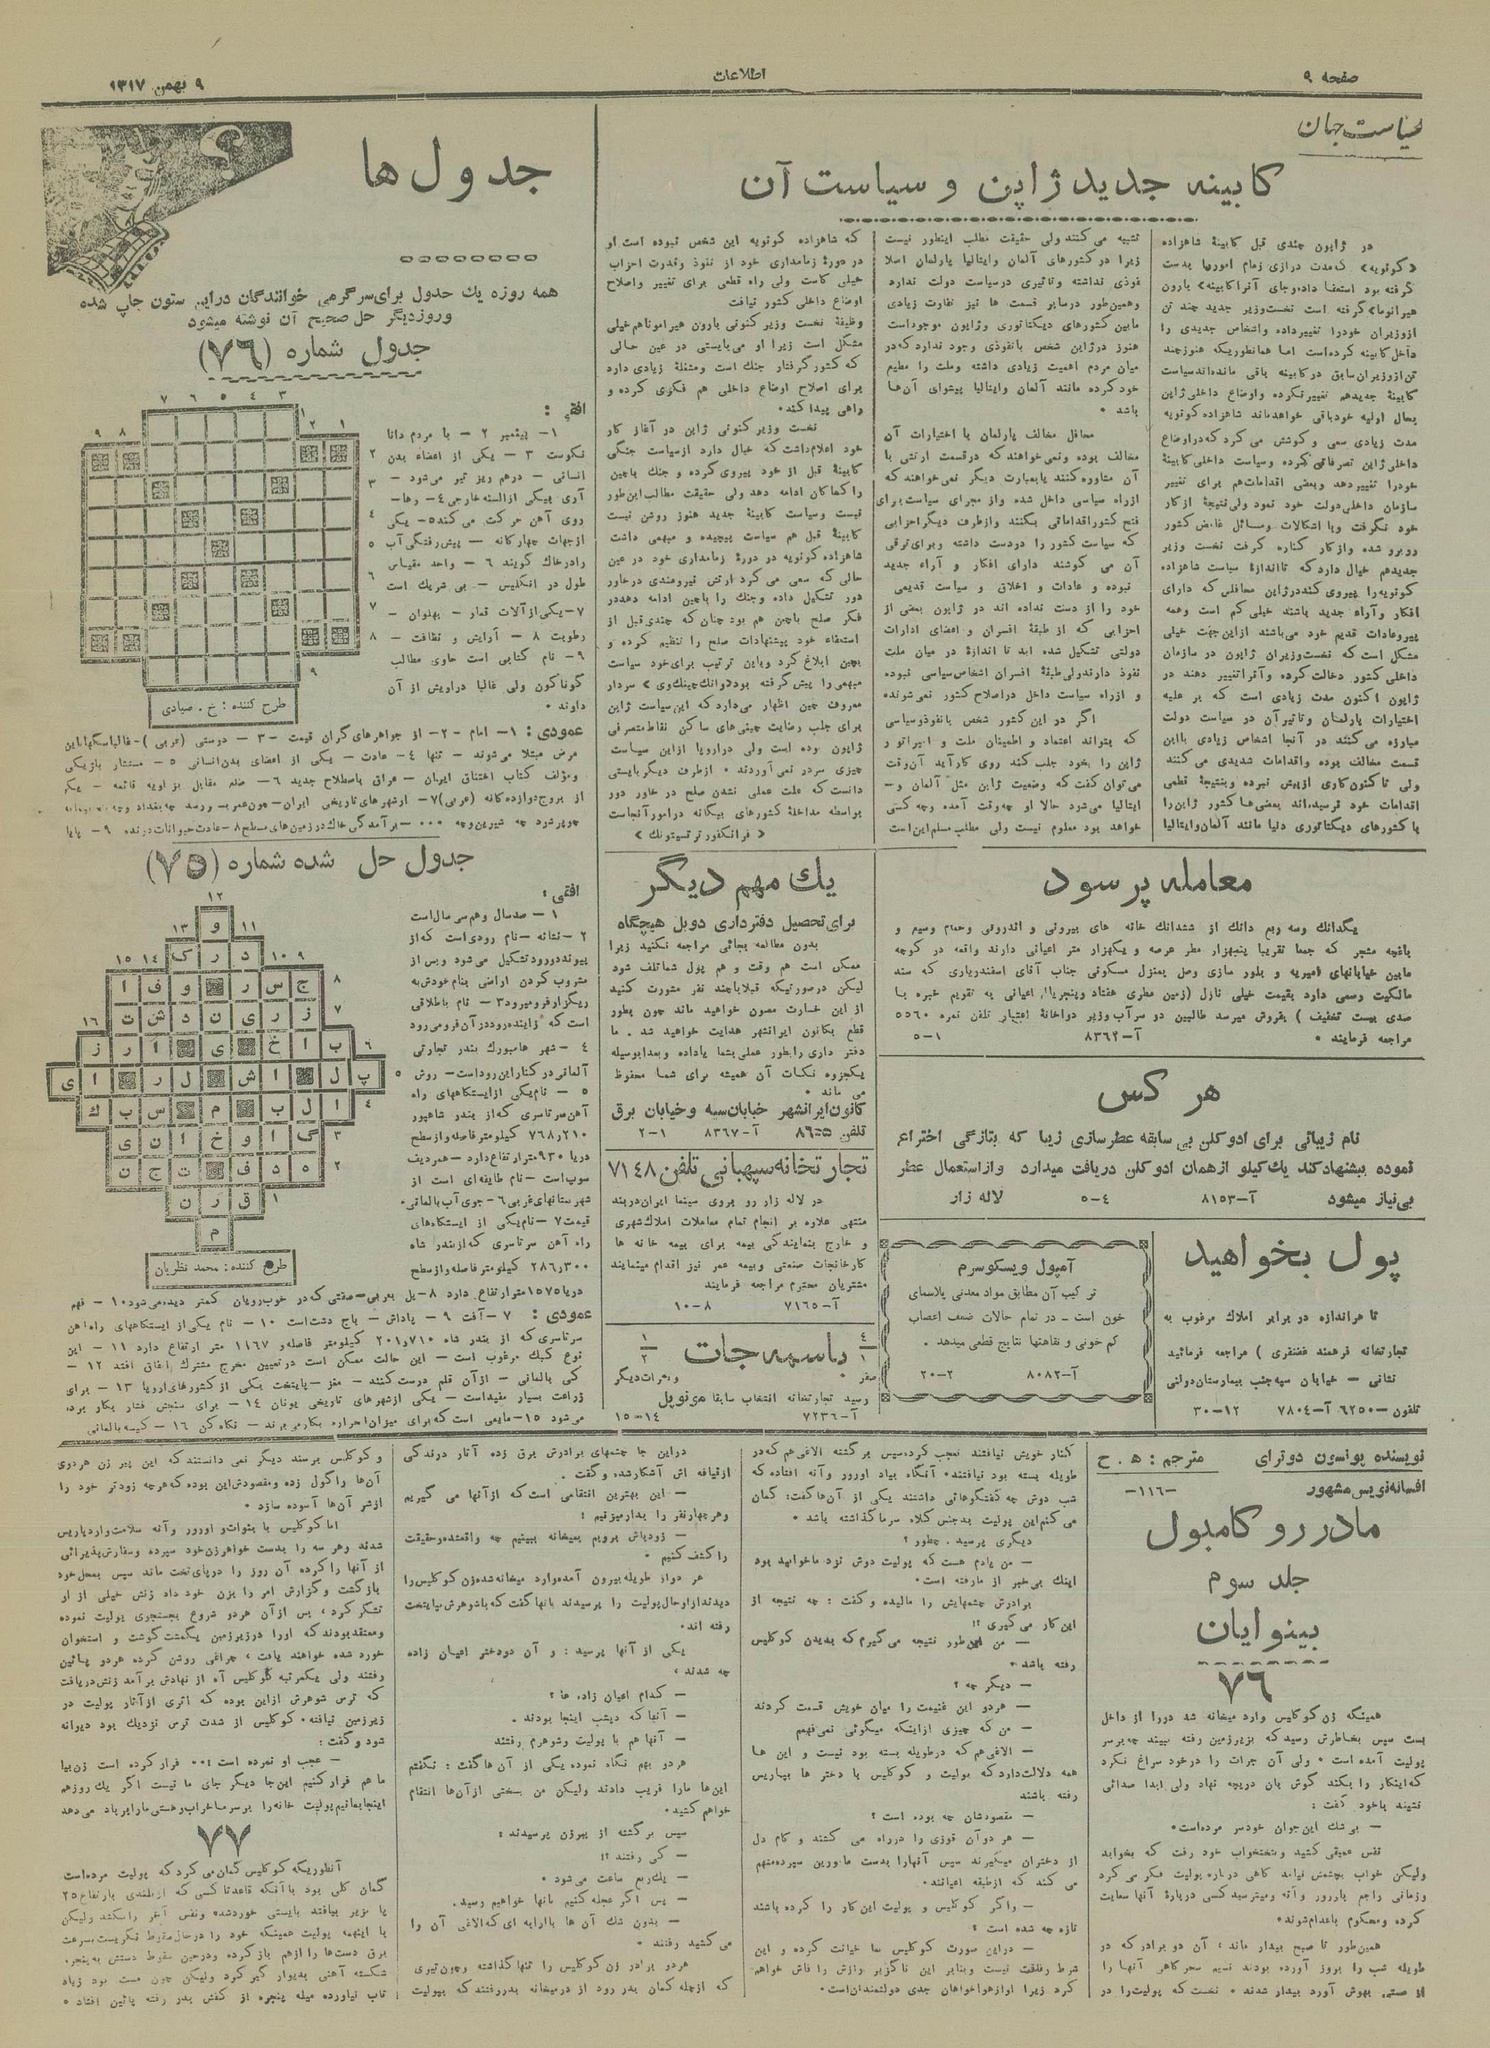 صفحه ۹
اطلاعات
۹ بهمن ۱۳۱۷
سیاست جهان
کابینه جدید ژاپن و سیاست آن
در ژاپون چندی قبل کابینهٔ شاهزاده
«کونویه» که مدت درازی زمام امور را بدست
گرفته بود استعفا داد و جای آنرا کابینه «بارون
هیرانوما» گرفته است نخست‌وزیر جدید چند تن
از وزیران خود را تغییر داده و اشخاص جدیدی را
داخل کابینه کرده است اما همانطوریکه هنوز چند
تن از وزیران سابق در کابینه باقی مانده‌اند سیاست
کابینهٔ جدید هم تغییر نکرده و اوضاع داخلی ژاپن
بحال اولیه خود باقی خواهد ماند شاهزاده کونویه
مدت زیادی سعی و کوشش می کرد که در اوضاع
داخلی ژاپن تصرفاتی کرده و سیاست داخلی کابینهٔ
خود را تغییر دهد و بعضی اقدامات هم برای تغییر
سازمان داخلی دولت خود نمود ولی نتیجهٔ از کار
خود نگرفت و با اشکالات و مسائل غامض کشور
روبرو شده و از کار کناره گرفت نخست وزیر
جدید هم خیال دارد که تا اندازهٔ سیاست شاهزاده
کونویه را پیروی کند در ژاپن محافلی که دارای
افکار و آراء جدید باشند خیلی کم است و همه
پیرو عادات قدیم خود می‌باشند از این جهت خیلی
مشکل است که نخست وزیران ژاپون در سازمان
داخلی کشور دخالت کرده و آنرا تغییر دهند در
ژاپون اکنون مدت زیادی است که بر علیه
اختیارات پارلمان و تاثیر آن در سیاست دولت
مبارزه می‌کنند در آنجا اشخاص زیادی با این
قسمت مخالف بوده و اقدامات شدیدی می کنند
ولی تا کنون کاری از پیش نبرده و بنتیجهٔ قطعی
اقدامات خود نرسیده‌اند بعضی‌ها کشور ژاپن را
با کشورهای دیکتاتوری دنیا مانند آلمان و ایتالیا
تشبیه می کنند ولی حقیقت مطلب اینطور نیست
زیرا در کشورهای آلمان و ایتالیا پارلمان اصلا
نفوذی نداشته و تاثیری در سیاست دولت ندارد
و همین‌طور در سایر قسمت ها نیز تفاوت زیادی
مابین کشورهای دیکتاتوری و ژاپون موجود است
هنوز در ژاپن شخص با نفوذی وجود ندارد که در
میان مردم اهمیت زیادی داشته و ملت را مطیع
خود کرده مانند آلمان و ایتالیا پیشوای آن‌ها
باشد .
محافل مخالف پارلمان با اختیارات آن
مخالف بوده و نمی‌خواهند که در قسمت ارتشی با
آن مشاوره کنند یا بعبارت دیگر نمی خواهند که
از راه سیاسی داخل شده و از مجرای سیاست برای
فتح کشور اقداماتی بکنند و از طرف دیگر احزابی
که سیاست کشور را در دست داشته و برای ترقی
آن می کوشند دارای افکار و آراء جدید
نبوده و عادات و اخلاق و سیاست قدیمی
خود را از دست نداده اند در ژاپون بعضی از
احزابی که از طبقهٔ افسران و اعضای ادارات
دولتی تشکیل شده اند تا اندازهٔ در میان ملت
نفوذ دارند ولی طبقهٔ افسران اشخاص سیاسی نبوده
و از راه سیاست داخل در اصلاح کشور نمی‌شوند
اگر در این کشور شخص با نفوذ و سیاسی
که بتواند اعتماد و اطمینان ملت و امپراتور
ژاپن را بخود جلب کند روی کار آید آن‌وقت
می‌توان گفت که وضعیت ژاپن مثل آلمان و
ایتالیا می‌شود حالا او چه وقت آمده و چه کسی
خواهد بود معلوم نیست ولی مطلب مسلم این است
که شاهزاده کونویه این شخص نبوده است او
در دورهٔ زمامداری خود از نفوذ و قدرت احزاب
خیلی کاست ولی راه قطعی برای تغییر و اصلاح
اوضاع داخلی کشور نیافت
وظیفهٔ نخست وزیر کنونی بارون هیرانوما هم خیلی
مشکل است زیرا او می‌بایستی در عین حالی
که کشور گرفتار جنك است و مشغلهٔ زیادی دارد
برای اصلاح اوضاع داخلی هم فکری کرده و
راهی پیدا کند .
نخست وزیر کنونی ژاپن در آغاز کار
خود اعلام داشت که خیال دارد از سیاست جنگی
کابینهٔ قبل از خود پیروی کرده و جنك با چین
را کماکان ادامه دهد ولی حقیقت مطالب این طور
نیست و سیاست کابینهٔ جدید هنوز روشن نیست
کابینهٔ قبل هم سیاست پیچیده و مبهمی داشت
شاهزاده کونویه در دورهٔ زمامداری خود در عین
حالی که سعی می کرد ارتش نیرومندی در خاور
دور تشکیل داده و جنك را با چین ادامه دهد در
فکر صلح با چین هم بود چنان که چندی قبل از
استعفاء خود پیشنهادات صلح را تنظیم کرده و
بچین ابلاغ کرد و باین ترتیب برای خود سیاست
مبهمی را پیش گرفته بود «وانك چینك وی» سردار
معروف چین اظهار می‌دارد که این سیاست ژاپن
برای جلب رضایت چینی‌های ساکن نقاط متصرفی
ژاپون بوده است ولی در اروپا از این سیاست
چیزی سر در نمی آوردند . از طرف دیگر بایستی
دانست که علت عملی نشدن صلح در خاور دور
بواسطه مداخلهٔ کشورهای بیگانه در امور آنجاست
« فرانکفورتر تسیتونك »
جدول ها
همه روزه یك جدول برای سرگرمی خوانندگان در این ستون چاپ شده
و روز دیگر حل صحیح آن نوشته میشود
جدول شماره (۷۶)
۳ ۴ ۵ ۶ ۷
۱ ۲ ۸ ۹
افقی :
۱- پیغمبر ۲ - با مردم دانا
نکوست ۳ - یکی از اعضاء بدن
انسانی - درهم ریز تیر می‌شود -
آوی پیکی از السنه خارجی ۴- رها-
روی آهن حرکت می کند ۵- یکی
از جهات چهارگانه - پیش رفتگی آب
را در خاك گویند ۶ - واحد مقیاس
طول در انگلیس - بی شریك است
۷- یکی از آلات قمار - پهلوان -
رطوبت ۸ - آرایش و نظافت -
۹- نام کتابی است حاوی مطالب
گوناگون ولی غالبا دراویش از آن
دارند .
طرح کننده : خ . صیادی
عمودی : ۱- امام - ۲- از جواهرهای گران قیمت - ۳ - دوستی (عربی) - غالبا سگها باین
مرض مبتلا می‌شوند - تنها ۴- عادت - یکی از اعضای بدن انسانی ۵ - مستشار بلژیکی
و مؤلف کتاب اختناق ایران - فراق باصطلاح جدید ۶ - ضلع مقابل بزاویه قائمه - یك
از بروج دوازده‌گانه (عربی) ۷- از شهرهای تاریخی ایران - چون عمر بسر رسد چه بغداد و چه بلخ پیمانه
چو پر شود چه شیرین و چه ۰۰۰ - برآمدگی خاك در زمین های مسطح ۸- عادت حیوانات درنده ۹- پاپا
جدول حل شده شماره (۷۵)
۱۲
۱۳ ۱۱
۱۵ ۱۴ ۱۰ ۹
و
د ر ک
ج س ر و ف ا
ز ر ی ن د ش ت
ب ا خ ی آ ر ز
پ ل ا ش ل ر ا ی
ا ل ب م س ب ك
گ ا و خ ا ن ی
ه د ف ت ج ن
ق ر ن
م
طرح کننده : محمد نظریان
افقی :
۱ - صد سال و هم سی سال است
۲ - نشانه - نام رودی است که از
پیوند دو رود تشکیل می شود و پس از
مشروب کردن اراضی بنام خودش به
ریگزار فرو میرود ۳ - نام باطلاقی
است که زاینده رود در آن فرو می رود
۴ - شهر هامبورك بندر تجارتی
آلمانی در کنار این رود است - روش
۵ - نام یکی از ایستگاههای راه
آهن سرتاسری که از بندر شاهپور
۷۶۸٫۲۱۰ کیلومتر فاصله و از سطح
دریا ۹۳۰ متر ارتفاع دارد - هم ردیف
سوپ است - نام طایفه‌ای است از
شهرستانهای غربی ۶ - جوی آب بالمانی .
قیمت ۷ - نام یکی از ایستگاه‌های
راه آهن سرتاسری که از بندر شاه
۲۸۶٫۳۰۰ کیلومتر فاصله و از سطح
دریا ۱۵۷۵ متر ارتفاع دارد ۸ - پل بعربی - صفتی که در خوب رویان کمتر دیده می‌شود ۱۰ - فهم
عمودی : ۷ - آفت ۹ - پاداش - باج دشت است ۱۰ - نام یکی از ایستگاههای راه آهن
سرتاسری که از بندر شاه ۲۰۱٫۷۱۰ کیلومتر فاصله و ۱۱۶۷ متر ارتفاع دارد ۱۱ - این
نوع کبك مرغوب است - این حالت ممکن است در تعیین مخرج مشترك اتفاق افتد ۱۲ -
کی بالمانی - از آن قلم درست کنند - مغز - پایتخت یکی از کشورهای اروپا ۱۳ - برای
زراعت بسیار مفید است - یکی از شهرهای تاریخی یونان ۱۴ - برای سنجش فشار بکار برده
می شود ۱۵ - مایعی است که برای میزان الحراره بکار می‌برند - نگاه کن ۱۶ - کیسه بالمانی
معامله پر سود
یکدانك و سه ربع دانك از ششدانك خانه های بیرونی و اندرونی و حمام وسیع و
باغچه مشجر که جمعا تقریبا پنجهزار متر عرصه و یکهزار متر اعیانی دارند واقعه در کوچه
مابین خیابانهای امیریه و بلور سازی وصل بمنزل مسکونی جناب آقای اسفندیاری که سند
مالکیت رسمی دارد بقیمت خیلی نازل (زمین متری هفتاد و پنج ریال اعیانی به تقویم خبره با
صدی بیست تخفیف) بفروش میرسد طالبین دو سرآب وزیر دواخانهٔ اعتبار تلفن نمره ۵۵۶۰
مراجعه فرمایند .
آ-۸۳۶۲
۵-۱
هر کس
نام زیبائی برای ادوکلن بی سابقه عطرسازی زیبا که بتازگی اختراع
نموده پیشنهاد کند یك کیلو از همان ادوکلن دریافت میدارد و از استعمال عطر
بی‌نیاز میشود
آ-۸۱۵۳
۵-۴
لاله زار
یك مهم دیگر
برای تحصیل دفترداری دوبل هیچگاه
بدون مطالعه بجائی مراجعه نکنید زیرا
ممکن است هم وقت و هم پول شما تلف شود
لیکن در صورتیکه قبلا با چند نفر مشورت کنید
از این خسارت مصون خواهید ماند چون بطور
قطع بکانون ایرانشهر هدایت خواهید شد . ما
دفتر داری را بطور عملی بشما یاداده و بعدا بوسیله
یکجزوه نکات آن همیشه برای شما محفوظ
می ماند .
کانون ایرانشهر خیابان سپه و خیابان برق
تلفن ۸۶۰۵
آ-۸۳۶۷
۲-۱
تجارتخانه سپهبانی تلفن ۷۱۴۸
در لاله زار رو بروی سینما ایران در بند
منتهی علاوه بر انجام تمام معاملات املاك شهری
و خارج بنمایندگی بیمه برای بیمه خانه ها
کارخانجات صنعتی و بیمه عمر نیز اقدام مینمایند
مشتریان محترم مراجعه فرمایند
آ-۷۱۶۵
۱۰-۸
باسمه جات
۴/۱
۱/۲
صفر .
و نمرات دیگر
رسید تجارتخانه انتخاب سابقا مونوپل
آ-۷۲۳۶
۱۵-۱۴
آمپول ویسکوسرم
ترکیب آن مطابق مواد معدنی پلاسمای
خون است - در تمام حالات ضعف اعصاب
کم خونی و نقاهتها نتایج قطعی میدهد .
آ-۸۰۸۲
۲۰-۲
پول بخواهید
تا هر اندازه در برابر املاك مرغوب به
تجارتخانه فرهمند غضنفری ) مراجعه فرمائید
نشانی - خیابان سپه جنب بیمارستان دولتی
تلفون -۶۲۵۰ آ-۷۸۰۴
۳۰-۱۲
نویسنده پونسون دوترای
افسانه نویس مشهور
مترجم : ه . ح
-۱۱۶-
مادر رو کامبول
جلد سوم
بینوایان
۷۶
همینکه زن کوکلیس وارد میخانه شد در را از داخل
بست سپس بخاطرش رسید که بزیر زمین رفته ببیند چه بر سر
پولیت آمده است . ولی آن جرات را در خود سراغ نکرد
که اینکار را بکند گوش بآن دریچه نهاد ولی ابدا صدائی
نشنید با خود گفت :
- بی شك این جوان خودسر مرده است .
نفس عمیقی کشید و بتختخواب خود رفت که بخوابد
ولیکن خواب بچشمش نیامد گاهی درباره پولیت فکر می کرد
و زمانی راجع باورور و آنه و میترسید کسی دربارهٔ آنها سعایت
کرده و محکوم باعدام شوند .
همین‌طور تا صبح بیدار ماند ؛ آن دو برادر که در
طویله شب را بروز آورده بودند نسیم سحرگاهی آنها را
از مستی بهوش آورد بیدار شدند . نخست که پولیت را در
کنار خویش نیافتند تعجب کرده سپس برگشته الاغی هم که در
طویله بسته بود نیافتند . آنگاه بیاد اورور و آنه افتاده که
شب دوش چه گفتگوهائی داشتند یکی از آن‌ها گفت : گمان
می کنم این پولیت بدجنس کلاه سر ما گذاشته باشد .
دیگری پرسید . چطور ؟
- من یادم هست که پولیت دوش نزد ما خوابیده بود
اینك بی خبر از ما رفته است .
برادرش چشمهایش را مالیده و گفت : چه نتیجه از
این کار می گیری ؟!
- من این‌طور نتیجه می‌گیرم که بدیدن کوکلیس
رفته باشد .
- دیگر چه ؟
- هر دو این غنیمت را میان خویش قسمت کردند
- من که چیزی از اینکه میگوئی نمی‌فهمم
- الاغی هم که در طویله بسته بود نیست و این ها
همه دلالت دارد که پولیت و کوکلیس با دختر ها بپاریس
رفته باشند
- مقصودشان چه بوده است ؟
- هر دو آن قوزی را در راه می کشند و کام دل
از دختران میگیرند سپس آنها را بدست مامورین سپرده متهم
می کند که از طبقه اعیانند .
- و اگر کوکلیس و پولیت این کار را کرده باشند
تازه چه شده است ؟
- در این صورت کوکلیس بما خیانت کرده و این
شرط رفاقت نیست و بنابر این ناگزیر رازش را فاش خواهم
کرد زیرا او از هواخواهان جدی دولتمندان است .
در این جا چشمهای برادرش برق زده آثار درندگی
از قیافه اش آشکار شده و گفت .
- این بهترین انتقامی است که از آنها می گیریم
و هر چهار نفر را بدار میزنیم !
- زود باش برویم بمیخانه ببینیم چه واقع شده و حقیقت
را کشف کنیم .
هر دو از طویله بیرون آمده وارد میخانه شده زن کوکلیس را
دیدند از او حال پولیت را پرسیدند بآنها گفت که با شوهرش بپایتخت
رفته اند .
یکی از آنها پرسید : و آن دو دختر اعیان زاده
چه شدند ؟
- کدام اعیان زاده ها ؟
- آنها که دیشب اینجا بودند .
- آنها هم با پولیت و شوهرم رفتند
هر دو بهم نگاه نموده یکی از آن ها گفت : نگفتم
این‌ها ما را فریب دادند ولیکن من بسختی از آن‌ها انتقام
خواهم کشید .
سپس برگشته از پیرزن پرسیدند :
- کی رفتند ؟!
- یك ربع ساعت می شود .
- پس اگر عجله کنیم بآنها خواهیم رسید .
- بدون شك آن ها با ارابه ای که الاغی آن را
می کشید رفتند .
هر دو برادر زن کوکلیس را تنها گذاشته و چون تیری
که از چله کمان بدر رود از در میخانه بدر رفتند که بپولیت
و کوکلیس برسند دیگر نمی دانستند که این پیر زن هر دوی
آن‌ها را گول زده و مقصودش این بوده که هر چه زودتر خود را
از شر آن‌ها آسوده سازد .
اما کوکلیس با بنوات و اورور و آنه سلامت وارد پاریس
شدند و هر سه را بدست خواهر زن خود سپرده و سفارش پذیرائی
از آنها را کرده آن روز را در پای تخت ماند سپس بمحل خود
بازگشت و گزارش امر را بزن خود داد زنش خیلی از او
تشکر کرد ، پس از آن هر دو شروع بجستجوی پولیت نموده
و معتقد بودند که او را در زیر زمین یکمشت گوشت و استخوان
خورد شده خواهند یافت ، چراغی روشن کرده هر دو پائین
رفتند ولی یکمرتبه کوکلیس آه از نهادش برآمد زنش دریافت
که ترس شوهرش از این بوده که اثری از آثار پولیت در
زیر زمین نیافته . کوکلیس از شدت ترس نزدیك بود دیوانه
شود و گفت :
- عجب او نمرده است !۰۰ فرار کرده است زن بیا
ما هم فرار کنیم این‌جا دیگر جای ما نیست اگر یك روز هم
اینجا بمانیم پولیت خانه را بر سر ما خراب و هستی ما را بر باد می دهد
۷۷
آنطوریکه کوکلیس گمان می کرد که پولیت مرده است
گمان کلی بود با آنکه قاعدتا کسی که از بلندی بارتفاع ۲۵
پا بزیر بیافتد بایستی خورد شده و نفس آخر را بکشد ولیکن
با اینهمه پولیت همینکه خود را در حال سقوط نگریست بسرعت
برق دست‌ها را از هم باز کرده و در حین سقوط دستش به پنجره
شکسته آهنی بدیوار گیر کرد ولیکن چون مست بود زیاد
تاب نیاورده میله پنجره از کفش بدر رفته پائین افتاد .